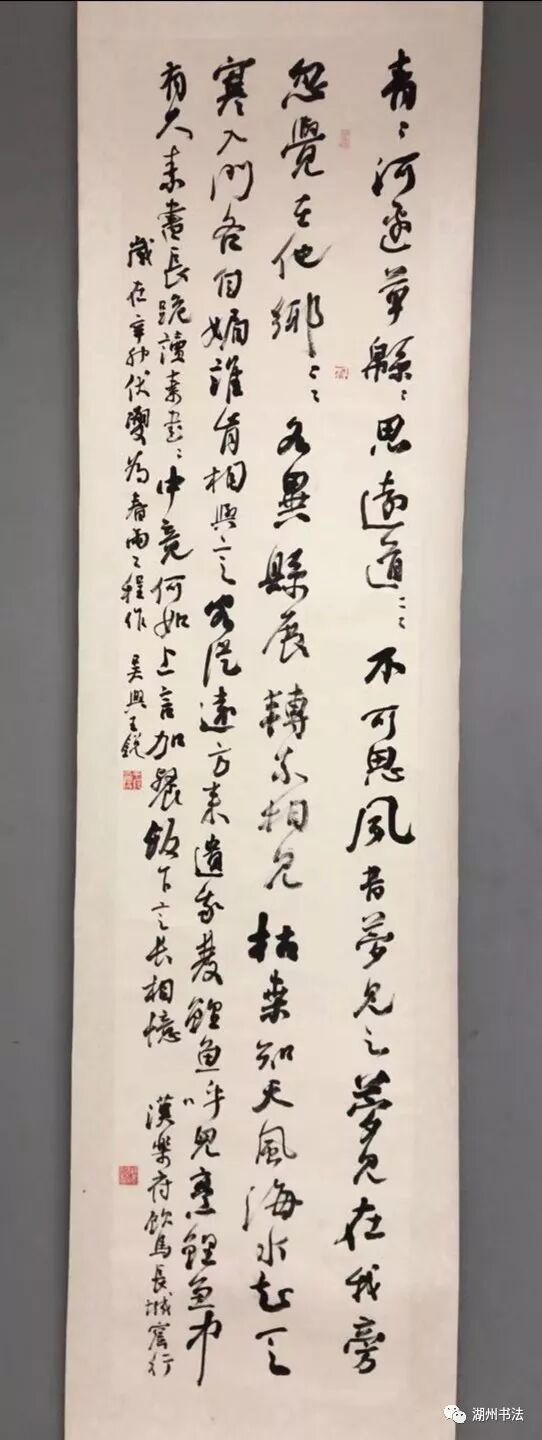 青〻河邊草緜〻思遠道〻〻不可思夙昔夢見之夢見在我旁
忽覺在他鄉〻〻各異縣展轉不相見枯桑知天風海水知天
寒入門各自媚誰肯相與言客從遠方來遺我雙鯉魚呼兒烹鯉魚中
有尺素書長跪讀素書〻中竟何如上言加餐飯下言長相憶 漢樂府飲馬長城窟行
歲在辛卯伏為春雨程作 吳興王銳
湖州书法